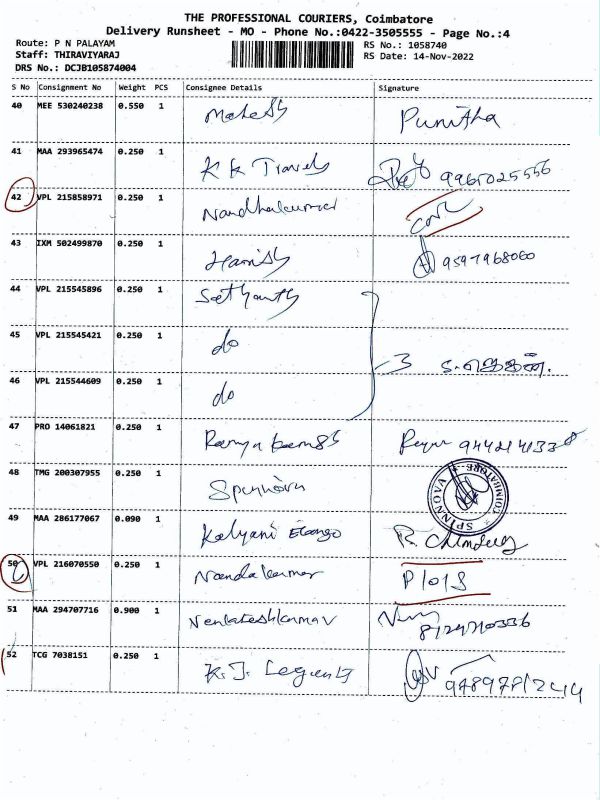 THE PROFESSIONAL COURIERS, Coimbatore
Delivery Runsheet - MO - Phone No.:0422-3505555 - Page No.:4
Route: P N PALAYAM
RS No.: 1058740
Staff: THIRAVIYARAJ
RS Date: 14-Nov-2022
DRS No.: DCJB105874004
S No Consignment No Weight PCS Consignee Details Signature
40 MEE 530240238 0.550 1 Mahesh Punitha
41 MAA 293965474 0.250 1 K K Travels
42 VPL 215858971 0.250 1 Nandhakumar
43 IXM 502499870 0.250 1 Harish 9597968060
44 VPL 215545896 0.250 1
45 VPL 215545421 0.250 1 do 3
46 VPL 215544609 0.250 1 do
47 PRO 14061821 0.250 1
48 TMG 200307955 0.250 1 SPINNOVA COIMBATORE
49 MAA 286177067 0.090 1 Kalyani Elango
50 VPL 216070550 0.250 1 Nandakumar
51 MAA 294707716 0.900 1
52 TCG 7038151 0.250 1 K.J.